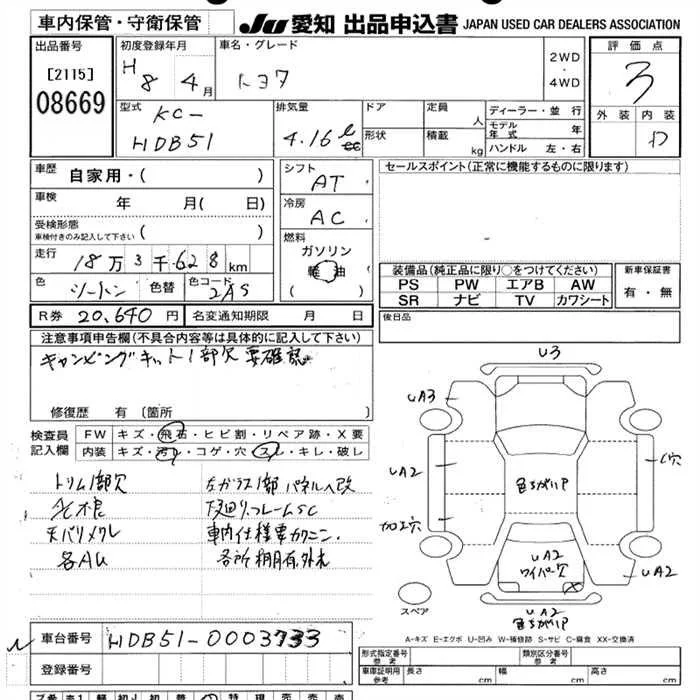 車内保管・守衛保管
JU 愛知 出品申込書 JAPAN USED CAR DEALERS ASSOCIATION
出品番号
[2115]
08669
初度登録年月
H 8年 4月
車名・グレード
トヨタ
2WD
・
4WD
評価点
3
外装 内装
D
型式
KC-
HDB51
排気量
4.16 ℓ
cc
ドア
形状
定員 人
積載 kg
ディーラー・並行
モデル年式 年
ハンドル 左・右
車歴
自家用・( )
車検 年 月( 日)
受検形態
車検付きのみ記入して下さい ( )
走行 18万3千628km
色 ツートン 色替 色コード 2AS
R券 20,640円 名変通知期限 月 日
シフト
AT
冷房
AC
燃料
ガソリン
軽油
( )
セールスポイント(正常に機能するものに限ります)
装備品(純正品に限り○をつけてください)
PS PW エアB AW
SR ナビ TV カワシート
新車保証書
有・無
後日品
注意事項申告欄(不具合内容等は具体的に記入して下さい)
キャンピングキット1部欠 要確認
修復歴 有 (箇所 )
検査員
記入欄
FW キズ・飛石・ヒビ割・リペア跡・X要
内装 キズ・汚れ・コゲ・穴・スレ・キレ・破レ
トリム1部欠
左ガラス1部パネルへ改
下廻り.フレームSC
天バリメクレ
車内仕様要カクニン.
各AU
各所棚有.外未
U3
UA3
UA2
加工穴
色ちがいP
UA2
ワイパー欠
UA2
色ちがいP
C穴
UA2
スペア
A-キズ E-エクボ U-凹み W-補修跡 S-サビ C-腐食 XX-交換済
車台番号 HDB51-0003733
登録番号
形式指定番号
参考
類別区分番号
参考
車庫証明用
参考
長さ cm 幅 cm 高さ cm